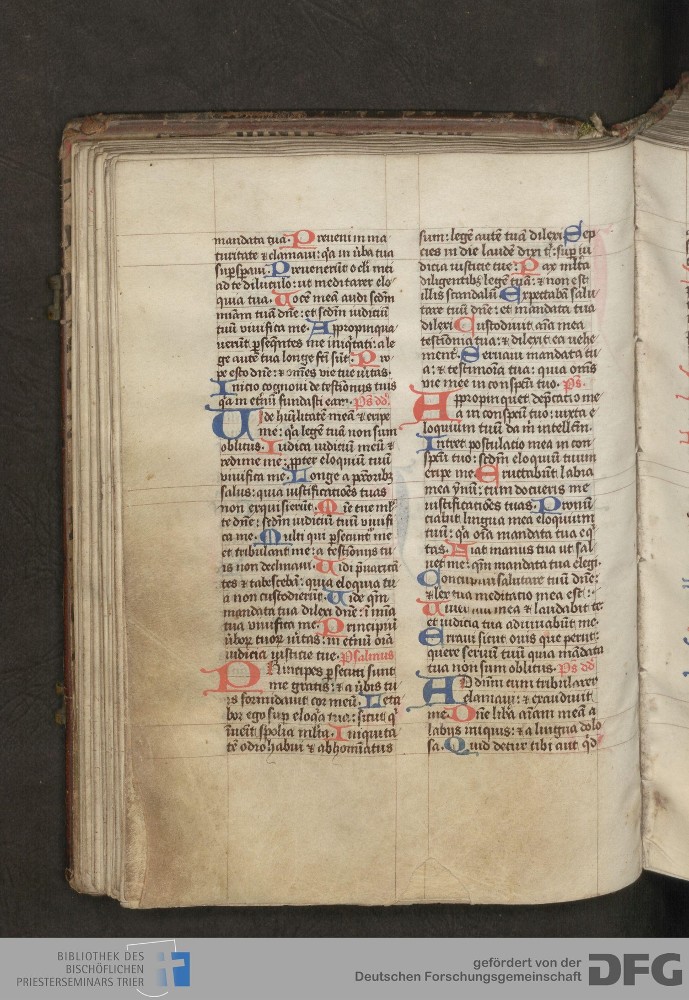 mandata tua. Preveni in ma
turitate ⁊ clamaui: q̄a in ūba tua
suꝑsꝑaui. Prevenerūt oc̄li mei
ad te diluculo: ut meditarer elo
quia tua. Vocē meā audi scd̄m
mīam tuam dn̄e: et scd̄m iudiciū
tuū viuifica me. Appropinqua
uerūt ꝑseq̄ntes me iniq̄tati: a le
ge autē tua longe fc̄ti sūt. Pro
pe es tu dn̄e: ⁊ om̄es vie tue ūitas.
Inicio cognoui de testiōnijs tuis
q̄a in et̄nū fundasti ea.
Uide hūilitatē meā ⁊ eripe
me: q̄a legē tuā non sum
oblitus. Iudica iudiciū meū ⁊
redime me: ꝓpter eloquiū tuū
viuifica me. Longe a pc̄c̄oribꝫ
salus: quia iustificatiōes tuas
non exquisierūt. Mīe tue ml̄
te dn̄e: scd̄m iudiciū tuū viuifi
ca me. Multi qui ꝑsecunt̄ me
et tribulant me: a testiōnijs tu
is non declinaui. Uidi p̄uarica
tes ⁊ tabescebā: quia eloquia tu
a non custodierūt. Uide qm̄
mandata tua dilexi dn̄e: ī mīa
tua viuifica me. Principiū
ūboꝝ tuoꝝ ūitas: in et̄nū oīa
iudicia iusticie tue. Psalmus
Principes ꝑsecuti sunt
me gratis: ⁊ a ūbis tu
is formidauit cor meū. Leta
bor ego suꝑ eloq̄a tua: sicut q̄
īuenit spolia ml̄ta. Iniquita
tē odio habui ⁊ abhomīatus
sum: legē autē tuā dilexi. Sep
cies in die laudē dixi t̄: suꝑ iu
dicia iusticie tue. Pax ml̄ta
diligentibꝫ legē tuā: ⁊ non est
illis scandalū. Expectabā salu
tare tuū dn̄e: et mandata tua
dilexi. Custodiuit aīa mea
testiōnia tua: ⁊ dilexit ea vehe
ment̄. Seruaui mandata tu
a: ⁊ testimōia tua: quia om̄s
vie mee in conspc̄u tuo. Ps.
Appropinquet dep̄catio me
a in conspc̄u tuo: iuxta e
loquium tuū da m̄ intellc̄m.
Intret postulatio mea in con
spc̄u tuo: scd̄m eloquiū tuum
eripe me. Eructabūt labia
mea ymnū: cum docueris me
iustificatiōes tuas. Pronū
ciabit lingua mea eloquium
tuū: q̄a oīa mandata tua eq̄
tas. Fiat manus tua ut sal
uet me: qm̄ mandata tua elegi.
Concupiui salutare tuū dn̄e:
⁊ lex tua meditatio mea est.
Viuet aīa mea ⁊ laudabit te
et iudicia tua adiuuabūt me.
Erraui sicut ouis que perijt:
quere seruū tuū quia mādata
tua non sum oblitus.
AD dūm cum tribularer
clamaui: ⁊ exaudiuit
me. Dn̄e libe᷒a aīam meā a
labijs iniquis: ⁊ a lingua dolo
sa. Quid detur tibi aut q̄d
BIBLIOTHEK DES
BISCHÖFLICHEN
PRIESTERSEMINARS TRIER
gefördert von der
Deutschen Forschungsgemeinschaft
DFG